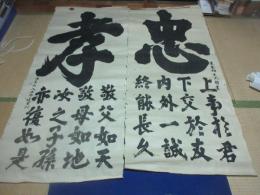 忠
上事於君
下交於友
內外一誠
終能長久
孝
敬父如天
敬母如地
汝之子孫
亦復如是